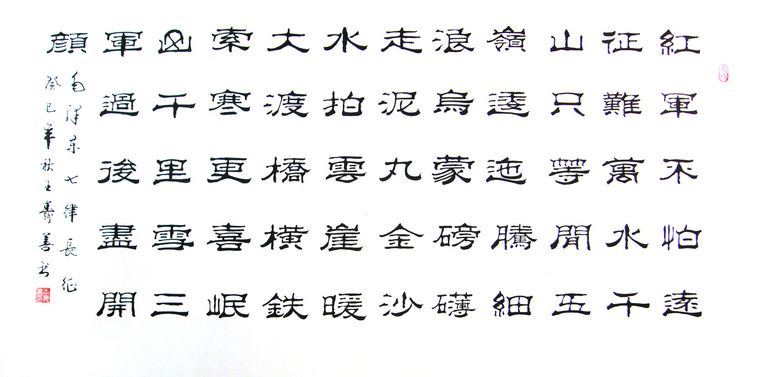 紅軍不怕遠
征難萬水千
山只等閒五
嶺逶迤騰細
浪烏蒙磅礴
走泥丸金沙
水拍雲崖暖
大渡橋橫鉄
索寒更喜岷
山千里雪三
軍過後盡開
顔
毛澤東七律長征
癸巳年秋王壽善書